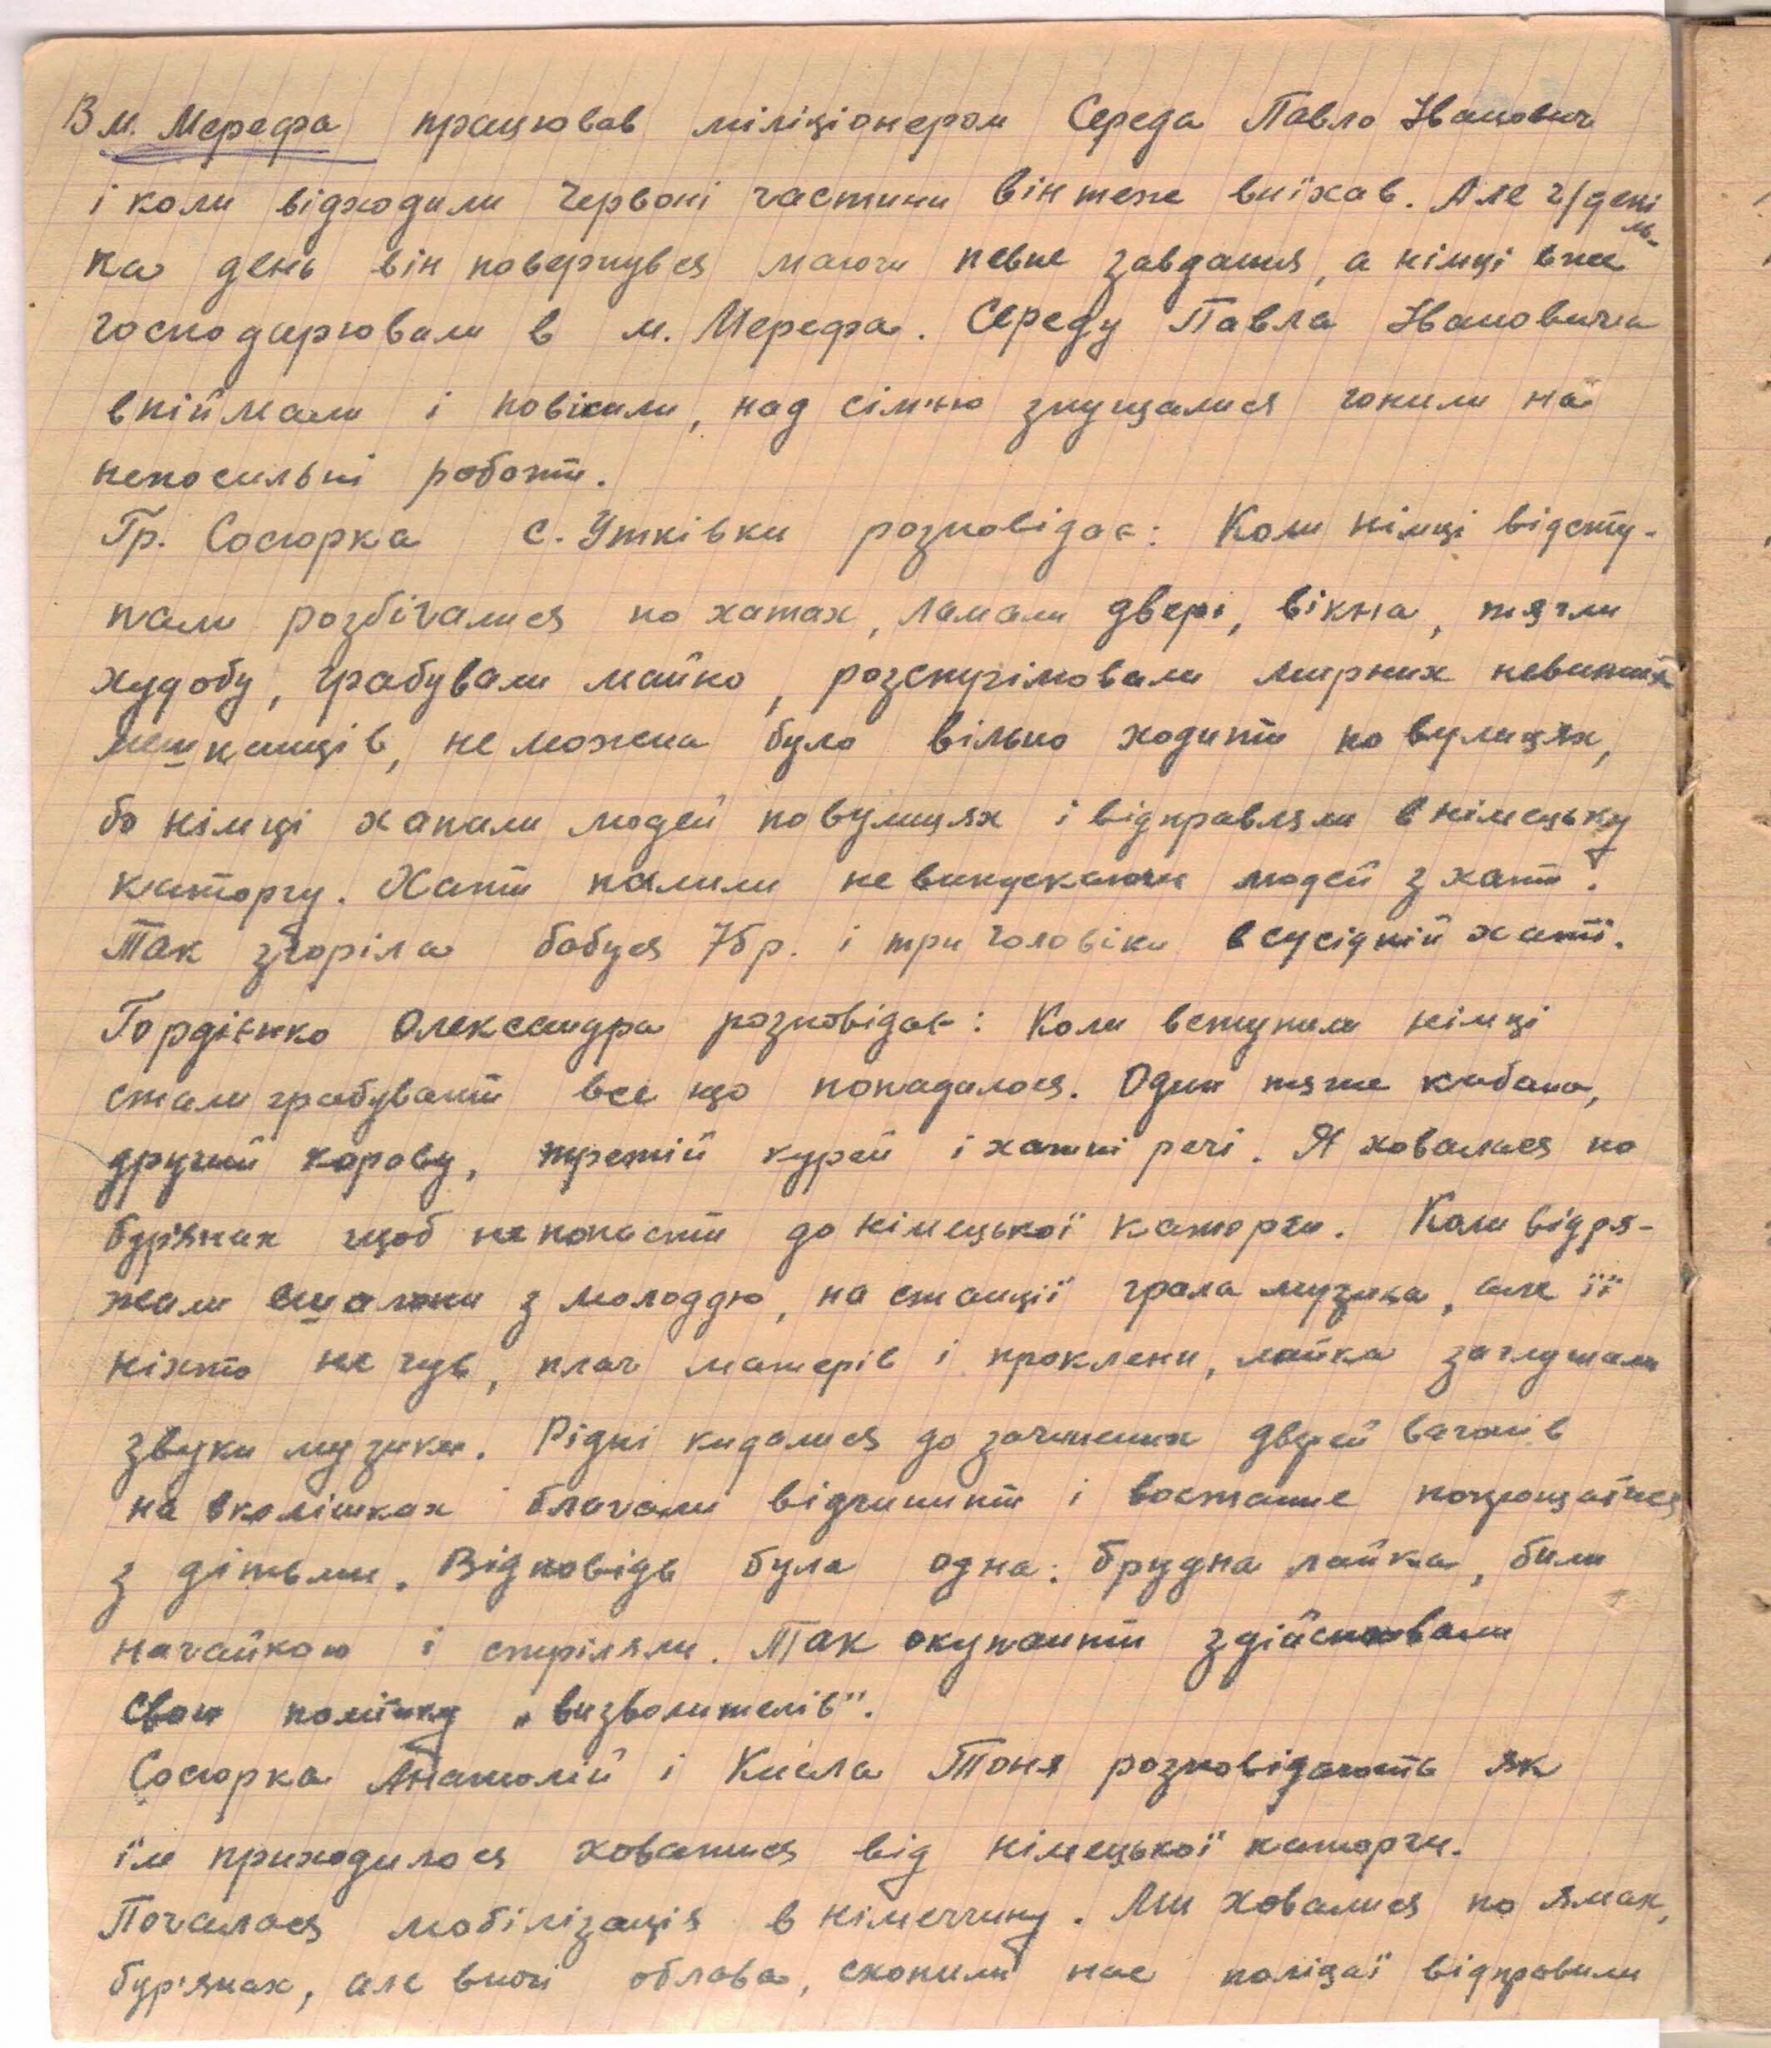 В м. Мерефа працював міліціонером Середа Павло Іванович
і коли відходили Червоні частини він теж виїхав. Але ч/декіль-
ка день він повернувся маючи певне завдання, а німці вже
господарювали в м. Мерефа. Середу Павла Івановича
впіймали і повісили, над сім'ю знущалися гонили на
непосильні роботи.
Гр. Сосюрка с. Утківки розповідає: Коли німці відсту-
пали розбігалися по хатах, ламали двері, вікна, тягли
худобу, грабували майно, розстрілювали мирних невинних
мешканців, не можна було вільно ходити по вулицях,
бо німці хапали людей по вулицях і відправляли в німецьку
каторгу. Хати палили не випускаючи людей з хати.
Так згоріла бабуся 75р. і три чоловіки в сусідній хаті.
Гордієнко Олександра розповідає: Коли вступили німці
стали грабувати все що попадалося. Один тягне кабана,
другий корову, третій курей і хатні речі. Я ховалася по
бур'янах щоб не попасти до німецької каторги. Коли відря-
жали ешалони з молоддю, на станції грала музика, але її
ніхто не чув, плач матерів і проклени, лайка заглушали
звуки музики. Рідні кидалися до зачинених дверей вагонів
на вколішках благали відчинити і востаннє попрощатися
з дітьми. Відповідь була одна: брудна лайка, били
нагайкою і стріляли. Так окупанти здійснювали
свою політику „визволителів".
Сосюрка Анатолій і Кисла Тоня розповідають як
їм приходилося ховатися від німецької каторги.
Почалася мобілізація в німеччину. Ми ховалися по ямах,
бур'янах, але вночі облава, схопили нас поліцаї відправили